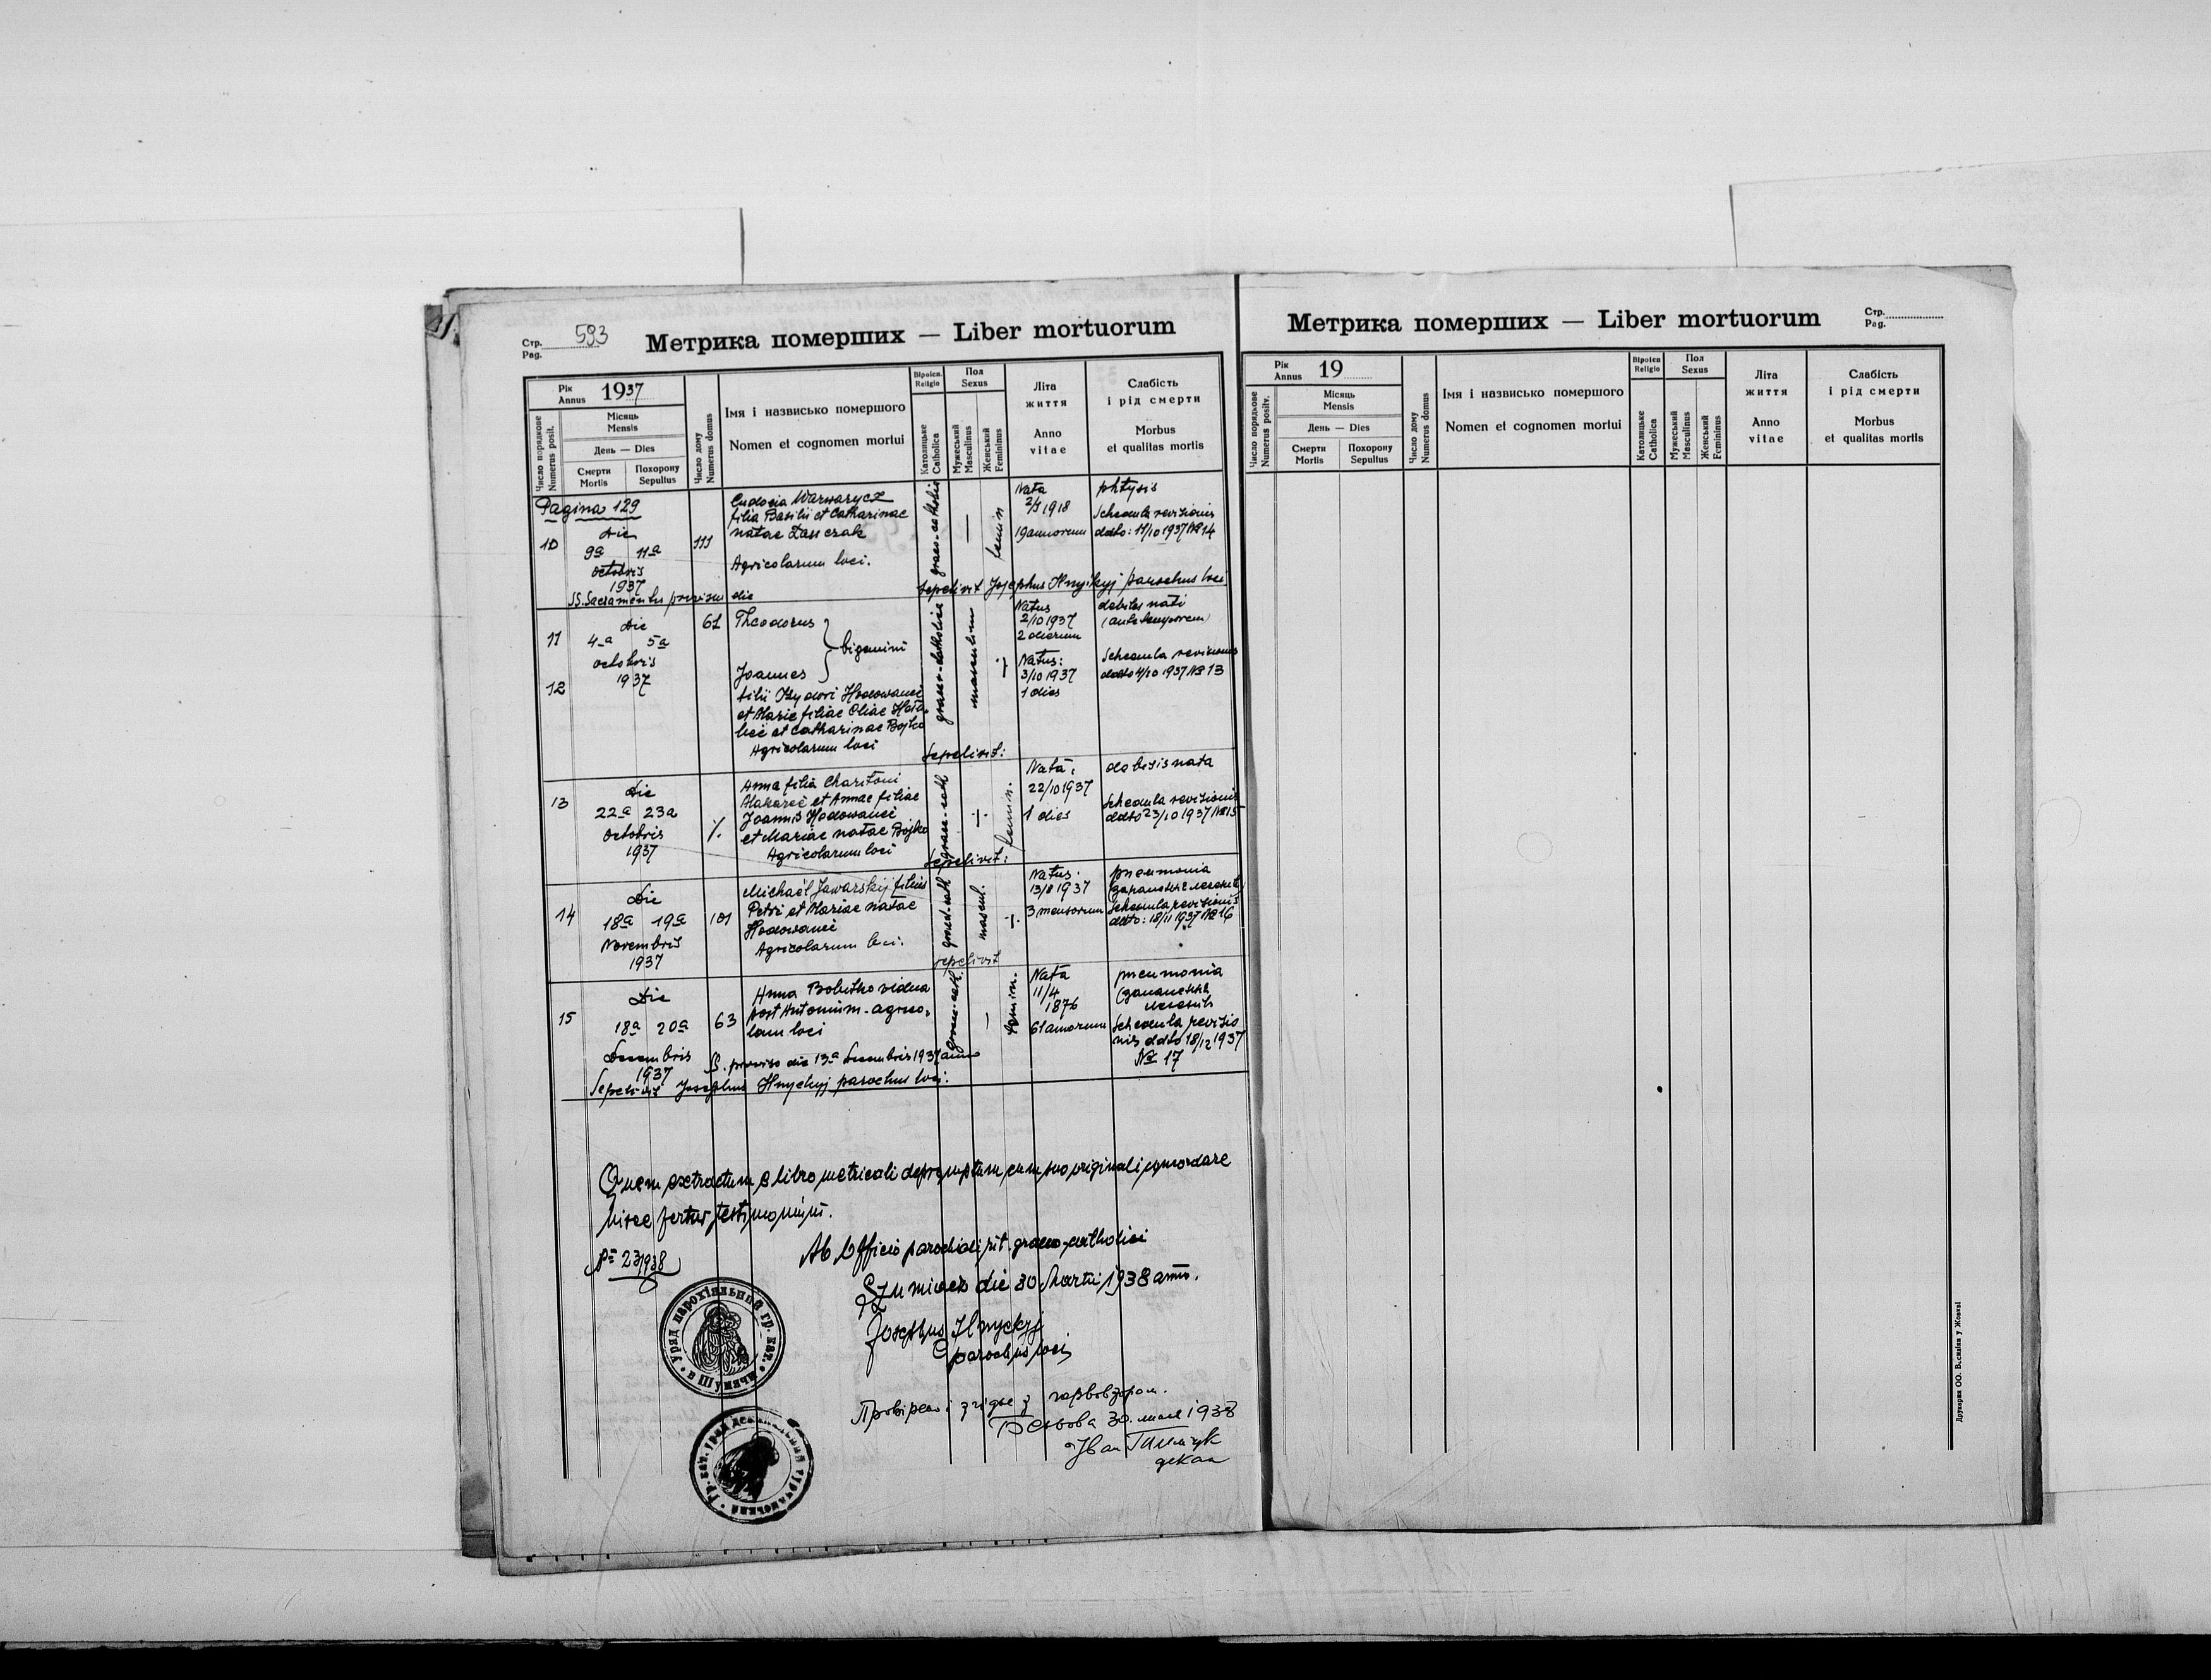 Стр. Pag. 593
Метрика померших — Liber mortuorum
Рік Annus 1937
Число порядкове Numerus posit.
Місяць Mensis
День — Dies
Смерти Mortis
Похорону Sepultus
Число дому Numerus domus
Імя і назвисько помершого
Nomen et cognomen mortui
Віроісп. Religio
Католицьке Catholica
Пол Sexus
Мужеський Masculinus
Женський Femininus
Літа життя
Anno vitae
Слабість і рід смерти
Morbus et qualitas mortis
Pagina 129
10
Die
9a 11a
octobris
1937
111
Eudocia Warwarycz
filia Basilii et Catharinae
natae Zasiczak
Agricolarum loci.
graeo-catholic
—
femin
Nata
2/3 1918
19 annorum
phtysis
Schedula revisionis
ddto: 11/10 1937 № 14
SS. Sacramentis provisa die
Sepelivit Josephus Hnyckyj parochus loci
11
12
Die
4-a 5a
octobris
1937
61
Theodorus
Joannes
bigemini
filii Izydori Hodowanei
et Marie filiae Eliae
et Catharinae Bojko
Agricolarum loci
graeco-catholicae
masculum
Natus
2/10 1937
2 dierum
Natus:
3/10 1937
1 dies
debiles nati
(ante temporem)
Schedula revisionis
ddto 4/10 1937 № 13
Sepelivit:
13
Die
22a 23a
octobris
1937
Anna filia Charitoni
Makarei et Annae filiae
Joannis Hodowanei
et Mariae natae Bojko
Agricolarum loci
graec-cath
femin.
Nata:
22/10 1937
1 dies
debilis nata
Schedula revisionis
ddto 23/10 1937 № 15
Sepelivit:
14
Die
18a 19a
Novembris
1937
101
Michaël Jawarskij filius
Petri et Mariae natae
Hodowanei
Agricolarum loci.
graec-cath
mascul.
Natus.
13/8 1937
3 mensorum
pneumonia
Schedula revisionis
ddto: 18/11 1937 № 16
sepelivit
15
Die
18a 20a
Decembris
1937
63
Anna Bobitko vidua
post Antonium - agrico-
lam loci
graec-cath.
—
femin.
Nata
11/4
1876
61 annorum
pneumonia
(запалення
легенів
Schedula revisio
nis ddto 18/12 1937
№ 17
SS. proviso die 13a Decembris 1937 anno
Sepelivit Josephus Hnyckyj parochus loci.
Quem extractum e libro metricali depromptum cum suo originali concordare
hisce fertur testimonium.
Ab Officio parochiali rit. graeco-catholici
23/938
Szumiacz die 30 Martii 1938 anno.
Josephus Hnyckyj
parochus loci
уряд парохіяльний гр. кат. в Шумячи
Провірено і згідне з первовзором.
30. мая 1938
о Іван
декан
Гр. кат. уряд деканальний турчанський
Метрика померших — Liber mortuorum
Стр. Pag.
Рік Annus 19
Число порядкове Numerus positv.
Місяць Mensis
День — Dies
Смерти Mortis
Похорону Sepultus
Число дому Numerus domus
Імя і назвисько помершого
Nomen et cognomen mortui
Віроісп Religio
Католицьке Catholica
Пол Sexus
Мужеський Masculinus
Женський Femininus
Літа життя
Anno vitae
Слабість і рід смерти
Morbus et qualitas mortis
Друкарня ОО. Василіян у Жовкві